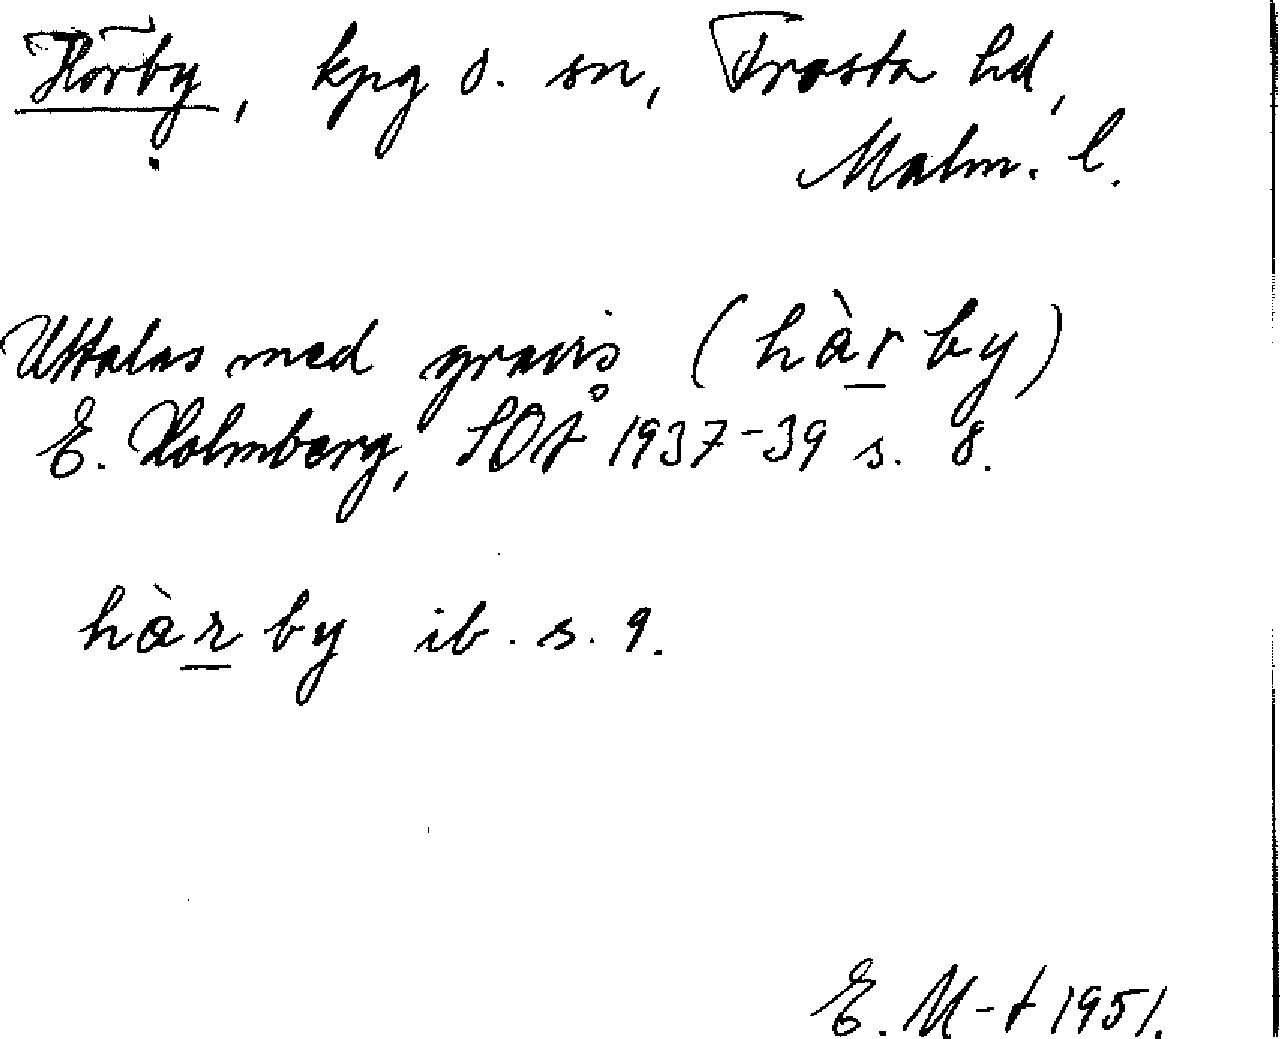 Hörby, kpg o. sn, Frosta hd,
Malm. l.
Uttalas med gravis (hàr by)
E. Holmberg, SOÅ 1937-39 s. 8.
hàr by ib. s. 9.
E. M-t 1951.